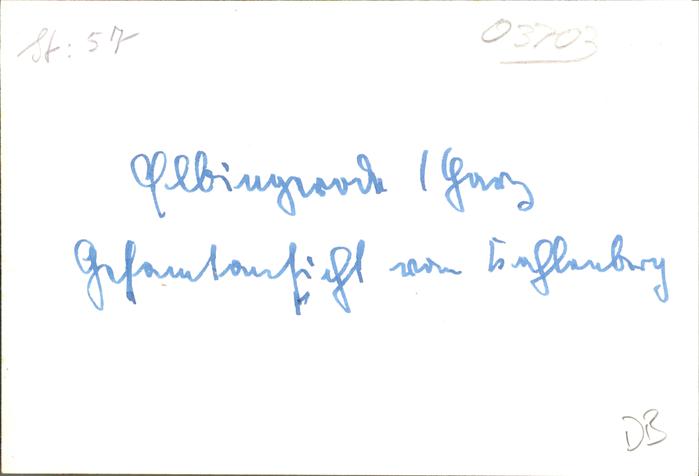 St: 57
03703
Elbingerode / Harz
Gesamtansicht vom Kahlenberg
DB